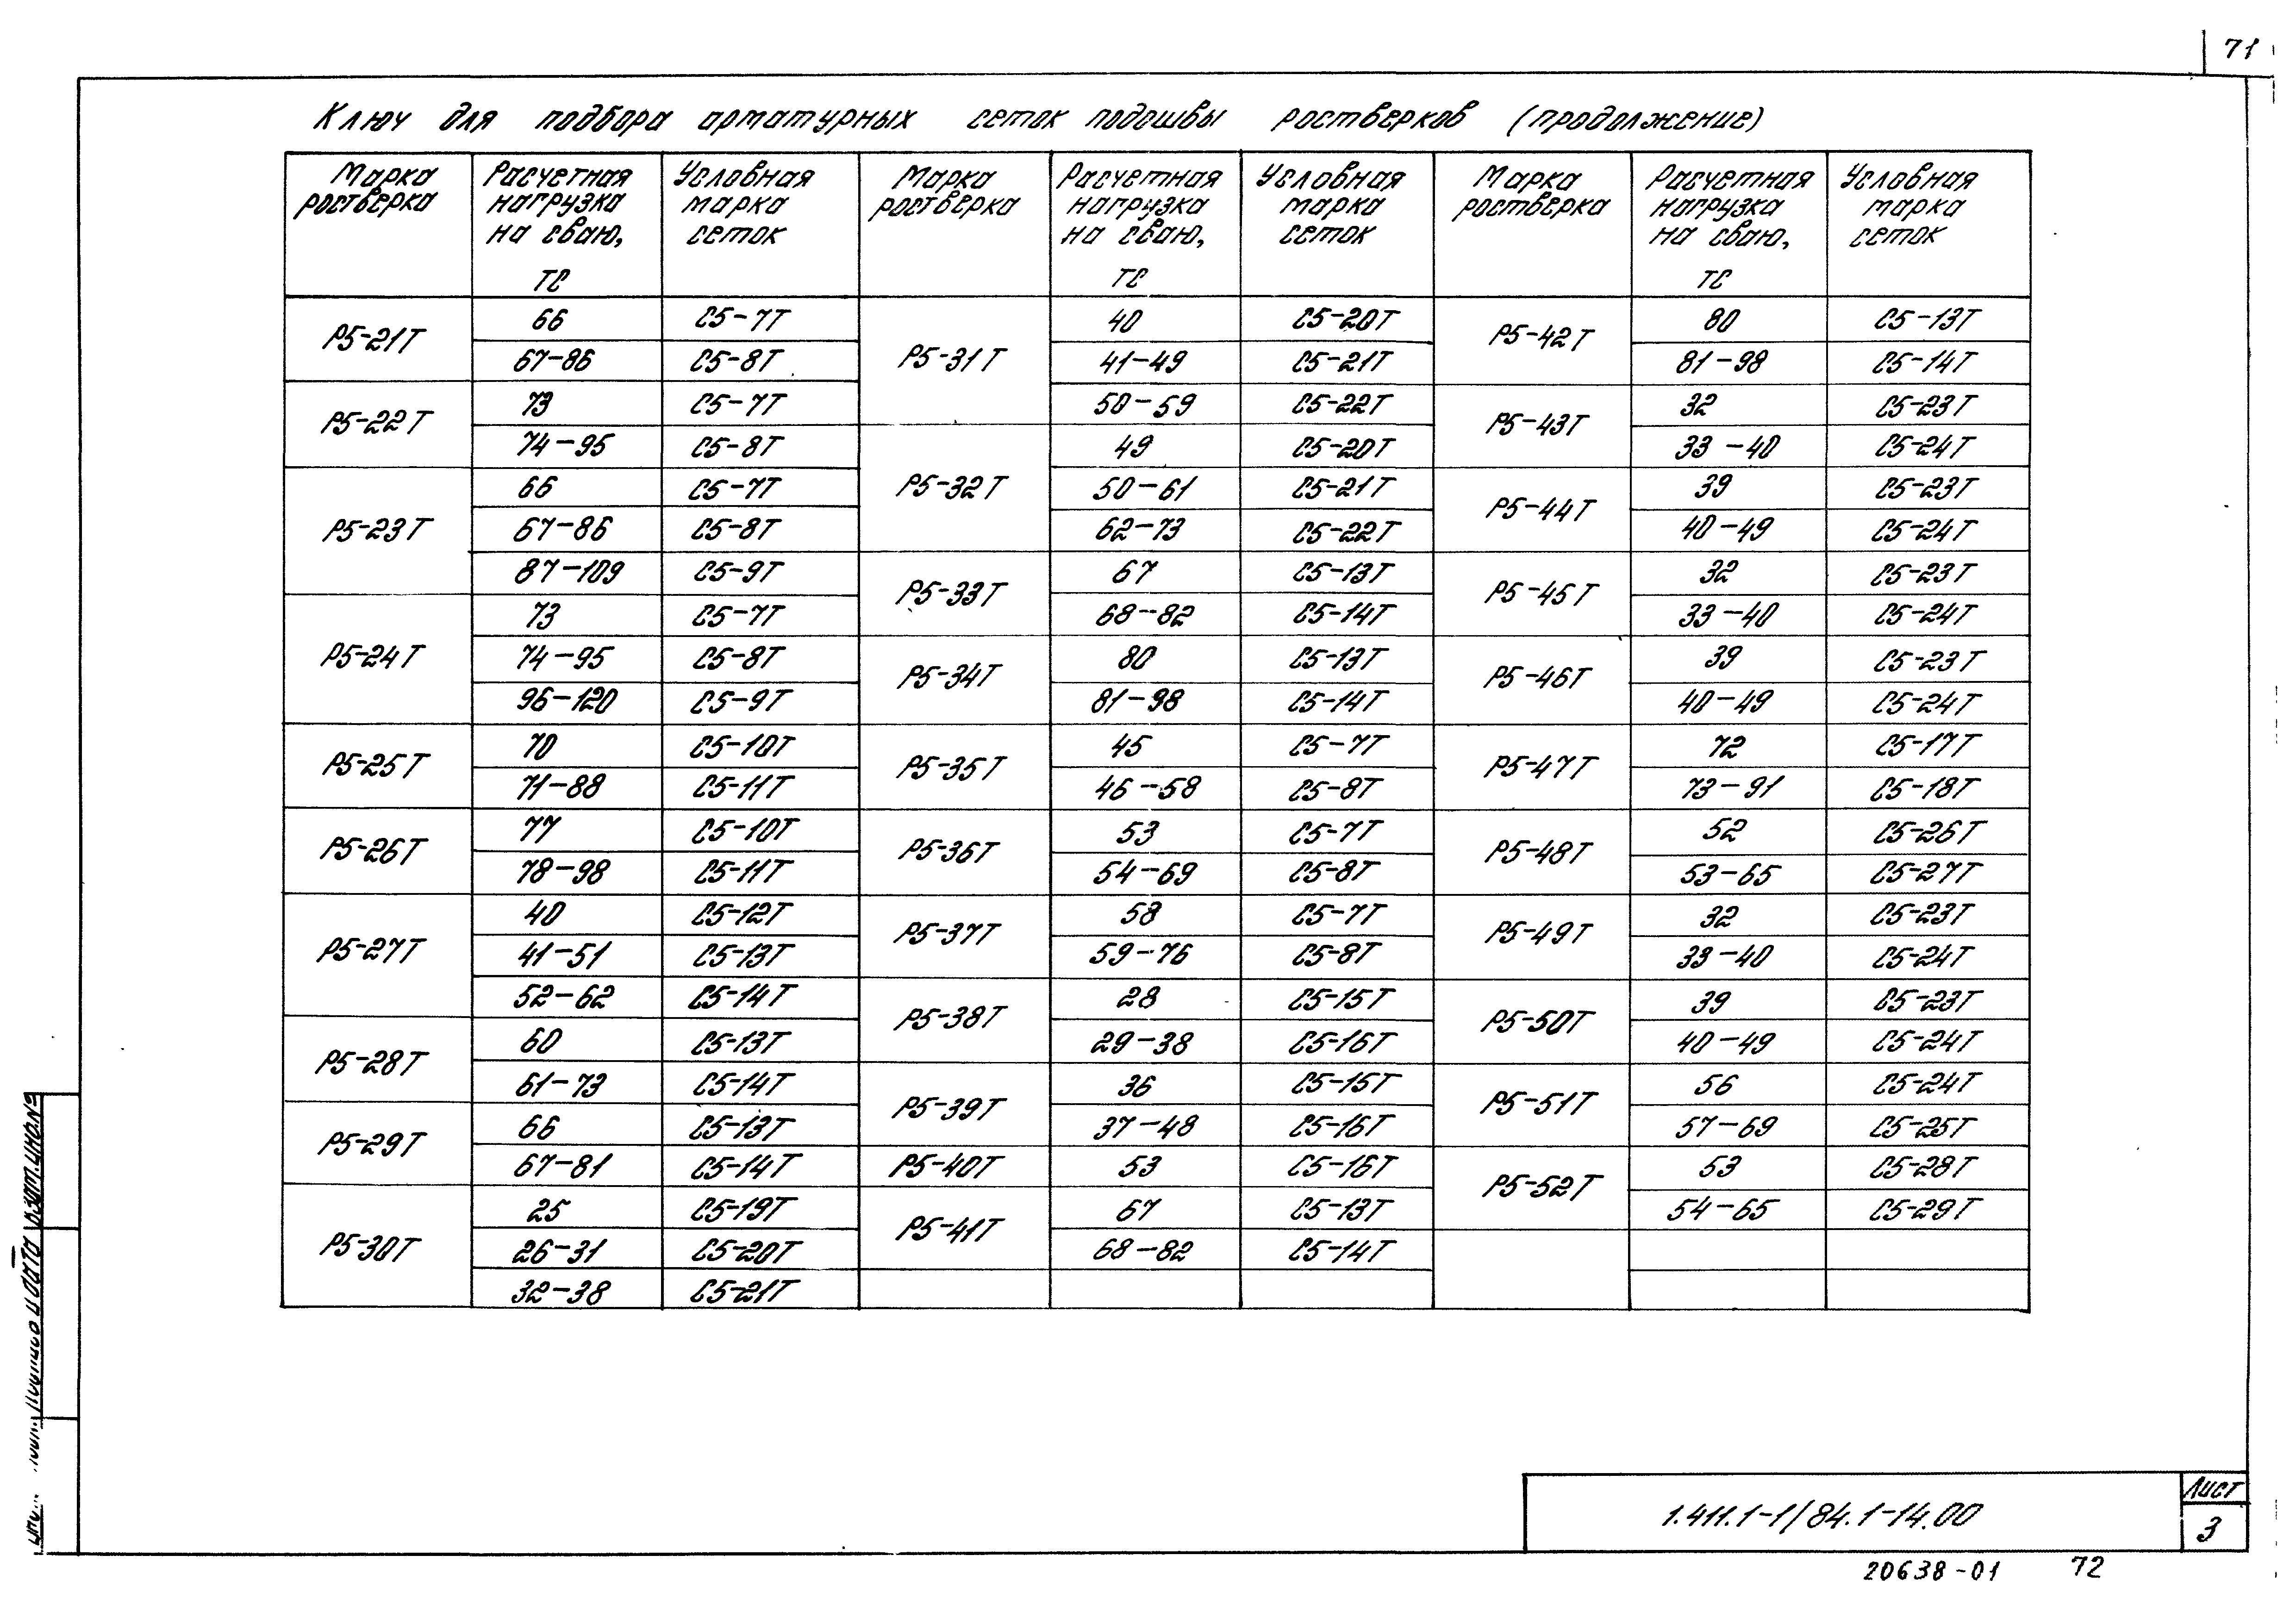 71
Ключ для подбора арматурных сеток подошвы ростверков (продолжение)
Марка ростверка | Расчетная нагрузка на сваю, тс | Условная марка сеток | Марка ростверка | Расчетная нагрузка на сваю, тс | Условная марка сеток | Марка ростверка | Расчетная нагрузка на сваю, тс | Условная марка сеток
Р5-21Т | 66 | С5-7Т
67-86 | С5-8Т
Р5-22Т | 73 | С5-7Т
74-95 | С5-8Т
Р5-23Т | 66 | С5-7Т
67-86 | С5-8Т
87-109 | С5-9Т
Р5-24Т | 73 | С5-7Т
74-95 | С5-8Т
96-120 | С5-9Т
Р5-25Т | 70 | С5-10Т
71-88 | С5-11Т
Р5-26Т | 77 | С5-10Т
78-98 | С5-11Т
Р5-27Т | 40 | С5-12Т
41-51 | С5-13Т
52-62 | С5-14Т
Р5-28Т | 60 | С5-13Т
61-73 | С5-14Т
Р5-29Т | 66 | С5-13Т
67-81 | С5-14Т
Р5-30Т | 25 | С5-19Т
26-31 | С5-20Т
32-38 | С5-21Т
Р5-31Т | 40 | С5-20Т
41-49 | С5-21Т
50-59 | С5-22Т
Р5-32Т | 49 | С5-20Т
50-61 | С5-21Т
62-73 | С5-22Т
Р5-33Т | 67 | С5-13Т
68-82 | С5-14Т
Р5-34Т | 80 | С5-13Т
81-98 | С5-14Т
Р5-35Т | 45 | С5-7Т
46-58 | С5-8Т
Р5-36Т | 53 | С5-7Т
54-69 | С5-8Т
Р5-37Т | 58 | С5-7Т
59-76 | С5-8Т
Р5-38Т | 28 | С5-15Т
29-38 | С5-16Т
Р5-39Т | 36 | С5-15Т
37-48 | С5-16Т
Р5-40Т | 53 | С5-16Т
Р5-41Т | 67 | С5-13Т
68-82 | С5-14Т
Р5-42Т | 80 | С5-13Т
81-98 | С5-14Т
Р5-43Т | 32 | С5-23Т
33-40 | С5-24Т
Р5-44Т | 39 | С5-23Т
40-49 | С5-24Т
Р5-45Т | 32 | С5-23Т
33-40 | С5-24Т
Р5-46Т | 39 | С5-23Т
40-49 | С5-24Т
Р5-47Т | 72 | С5-17Т
73-91 | С5-18Т
Р5-48Т | 52 | С5-26Т
53-65 | С5-27Т
Р5-49Т | 32 | С5-23Т
33-40 | С5-24Т
Р5-50Т | 39 | С5-23Т
40-49 | С5-24Т
Р5-51Т | 56 | С5-24Т
57-69 | С5-25Т
Р5-52Т | 53 | С5-28Т
54-65 | С5-29Т
1.411.1-1/84.1-14.00
Лист
3
20638-01 72